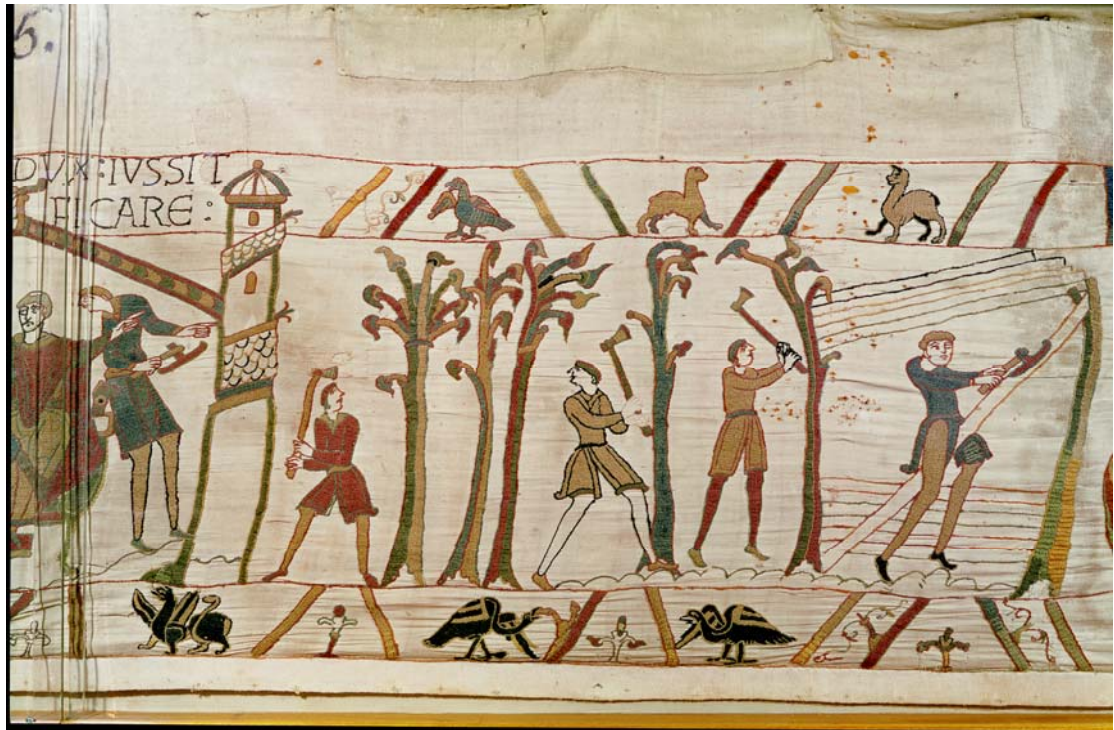 6.
DVX:IVSSIT
FICARE: